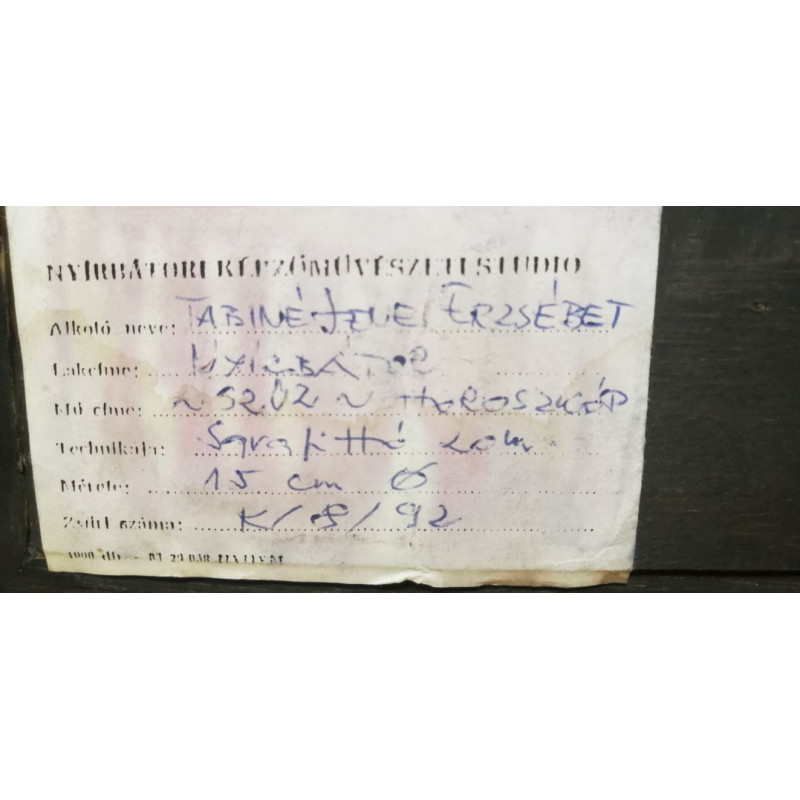 NYÍRBÁTORI KÉPZŐMŰVÉSZETI STUDIO
Alkotó neve: TABINÉ JENEI ERZSÉBET
Lakcíme: NYÍRBÁTOR
Mű címe: ~ SZŰZ ~ HOROSZKÓP
Technikája: Sgrafittó
Mérete: 15 cm Ø
Zsűri száma: K/8/92
1000 db